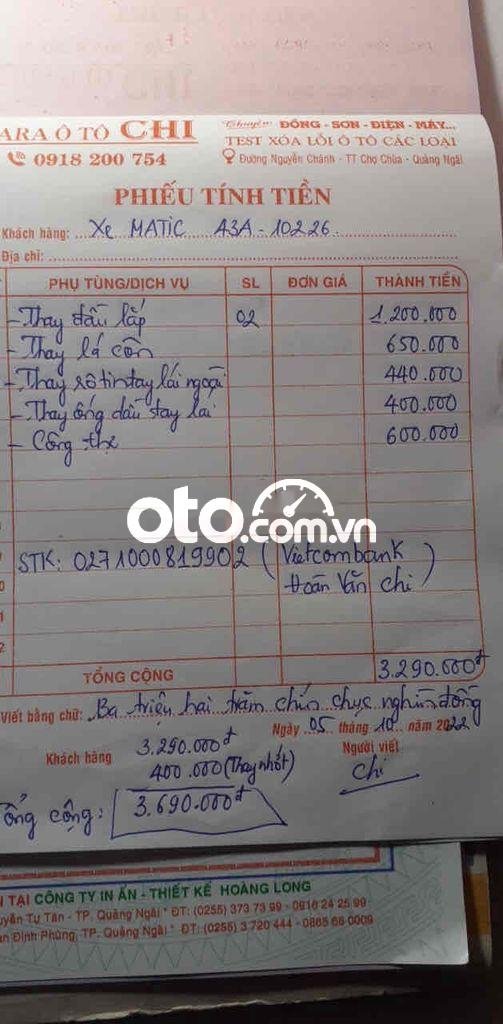 ARA Ô TÔ CHI
0918 200 754
Chuyên: ĐỒNG - SƠN - ĐIỆN - MÁY...
TEST XÓA LỖI Ô TÔ CÁC LOẠI
Đường Nguyễn Chánh - TT Chợ Chùa - Quảng Ngãi
PHIẾU TÍNH TIỀN
Khách hàng: Xe MATIC 43A-102.26
Địa chỉ:
PHỤ TÙNG/DỊCH VỤ SL ĐƠN GIÁ THÀNH TIỀN
- Thay dầu lắp 02 1.200.000
- Thay lá côn 650.000
- Thay rô tin tay lái ngoài 440.000
- Thay ống dầu tay lái 400.000
- Công thợ 600.000
oto.com.vn
STK: 0271000819902 (Vietcombank
Đoàn Văn Chi)
TỔNG CỘNG 3.290.000đ
Viết bằng chữ: Ba triệu hai trăm chín chục nghìn đồng
Ngày 05 tháng 10 năm 2022
Khách hàng Người viết
3.290.000đ
400.000 (Thay nhớt) Chi
Tổng cộng: 3.690.000đ
N TẠI CÔNG TY IN ẤN - THIẾT KẾ HOÀNG LONG
uyễn Tự Tân - TP. Quảng Ngãi * ĐT: (0255) 373 73 99 - 0916 24 25 99
an Đình Phùng, TP. Quảng Ngãi * ĐT: (0255) 3 720 444 - 0865 66 0009